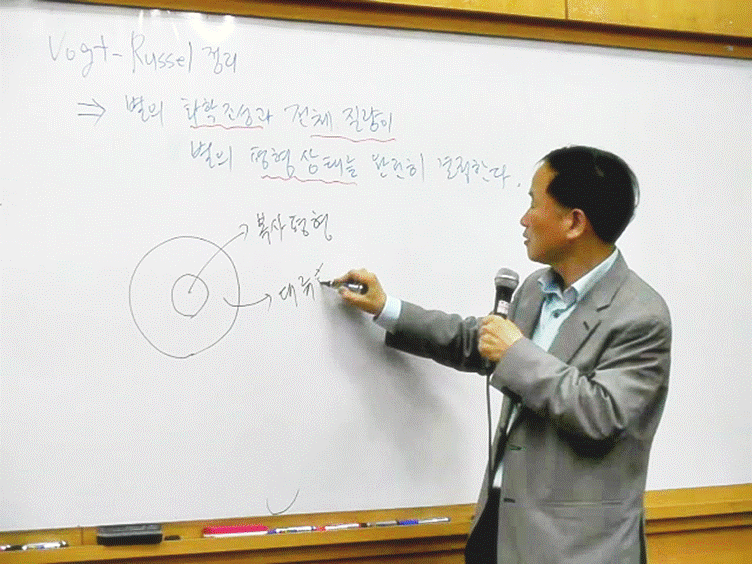 Vogt-Russel 정리
⇒ 별의 화학조성과 전체 질량이
별의 평형상태를 완전히 결정한다.
복사평형
대류